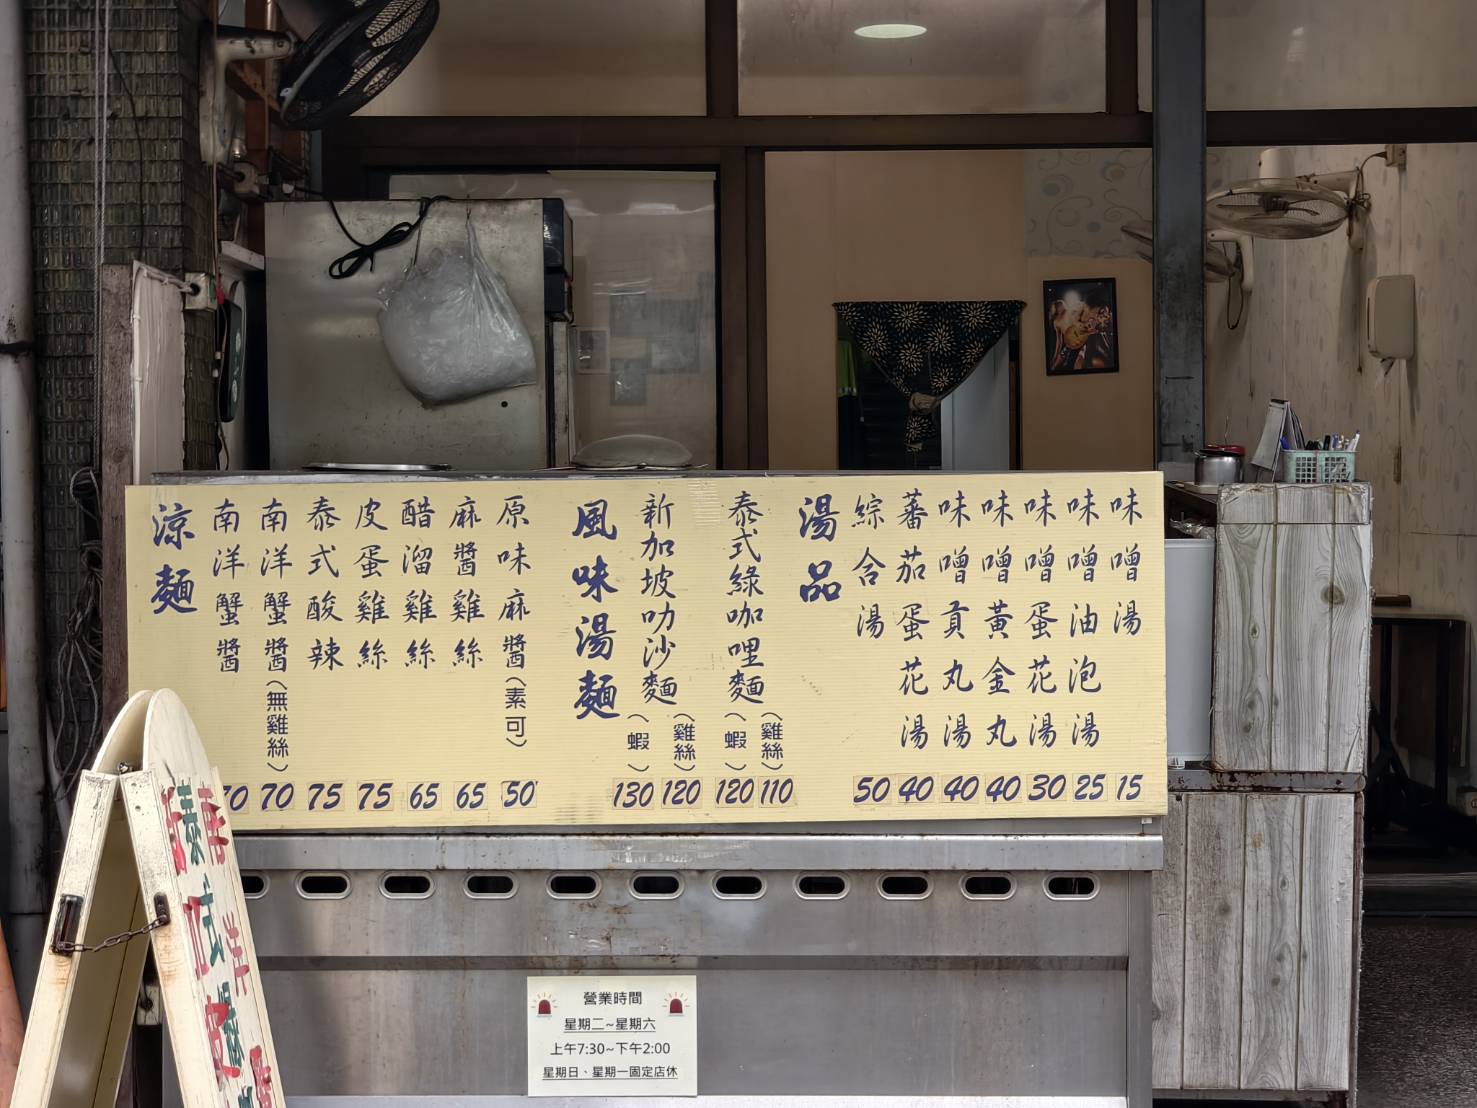 涼麵
南洋蟹醬 70
南洋蟹醬(無雞絲) 70
泰式酸辣 75
皮蛋雞絲 75
醋溜雞絲 65
麻醬雞絲 65
原味麻醬(素可) 50
風味湯麵
新加坡叻沙麵
(蝦) 130
(雞絲) 120
泰式綠咖哩麵
(蝦) 120
(雞絲) 110
湯品
綜合湯 50
蕃茄蛋花湯 40
味噌貢丸湯 40
味噌黃金丸 40
味噌蛋花湯 30
味噌油泡湯 25
味噌湯 15
營業時間
星期二~星期六
上午7:30~下午2:00
星期日、星期一固定店休
泰式綠
加坡
洋